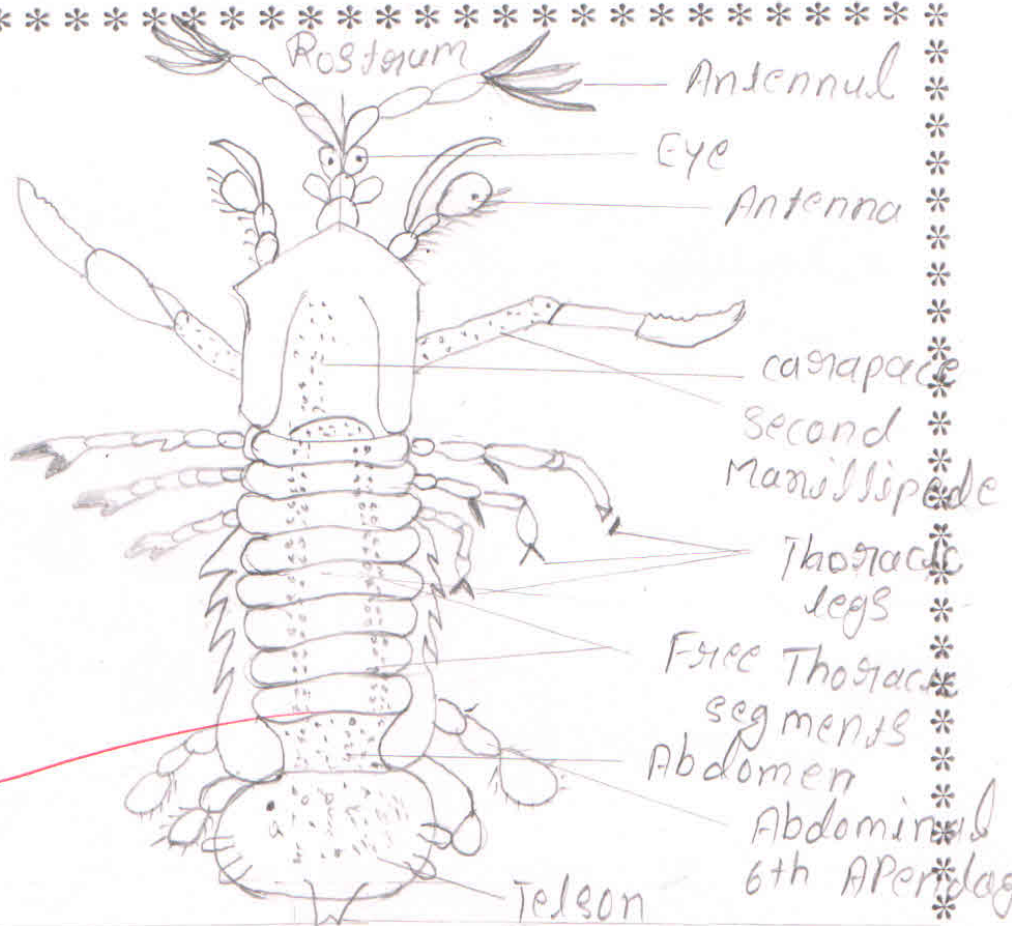 Rostrum
Antennul
Eye
Antenna
carapace
Second
Maxillipede
Thoracic
legs
Free Thoracic
segments
Abdomen
Abdominal
6th APendag
Telson